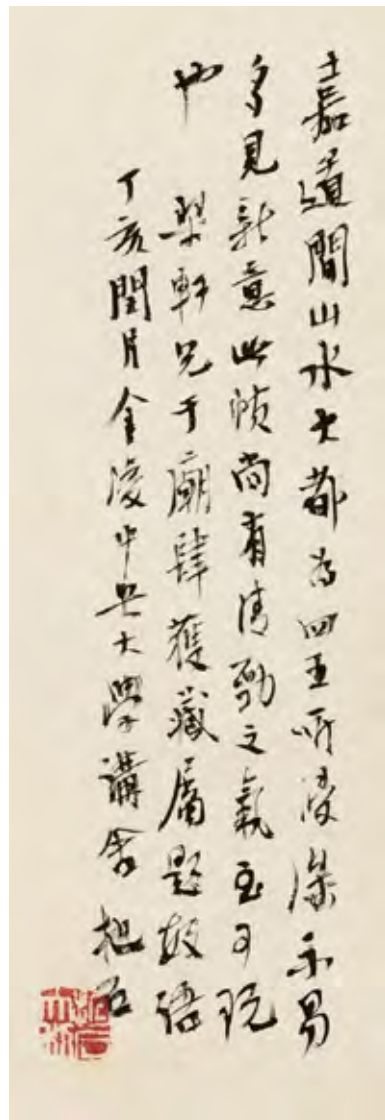 嘉道間山水大都为四王所浸染不易
多見新意此幀尚有清勁之氣至可玩
也 軒兄于廟肆獲藏屬題數語
丁亥閏月金陵中央大學講舍抱石